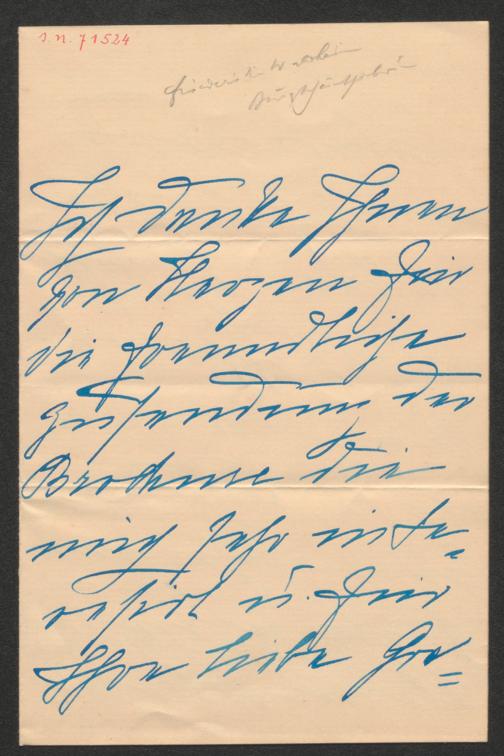 I.N. 71524
Ich danke Ihnen
von Herzen für
die freundliche
Zusendung der
Brochure die
mich sehr inte-
ressirt u. für
Ihre liebe Gra=